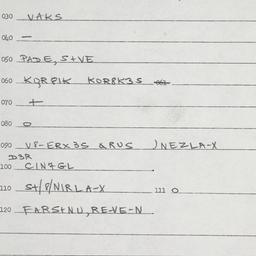 030 VAKS
040 —
050 PADE, S+VE
060 KQRPIK KORPK3S
070 +
080 O
090 VP-ERX3S &RUS )NEZLA-X
D3R
100 CIN7GL
110 S+/P/NIRLA-X 111 O
120 FARS+NU, RE-VE-N